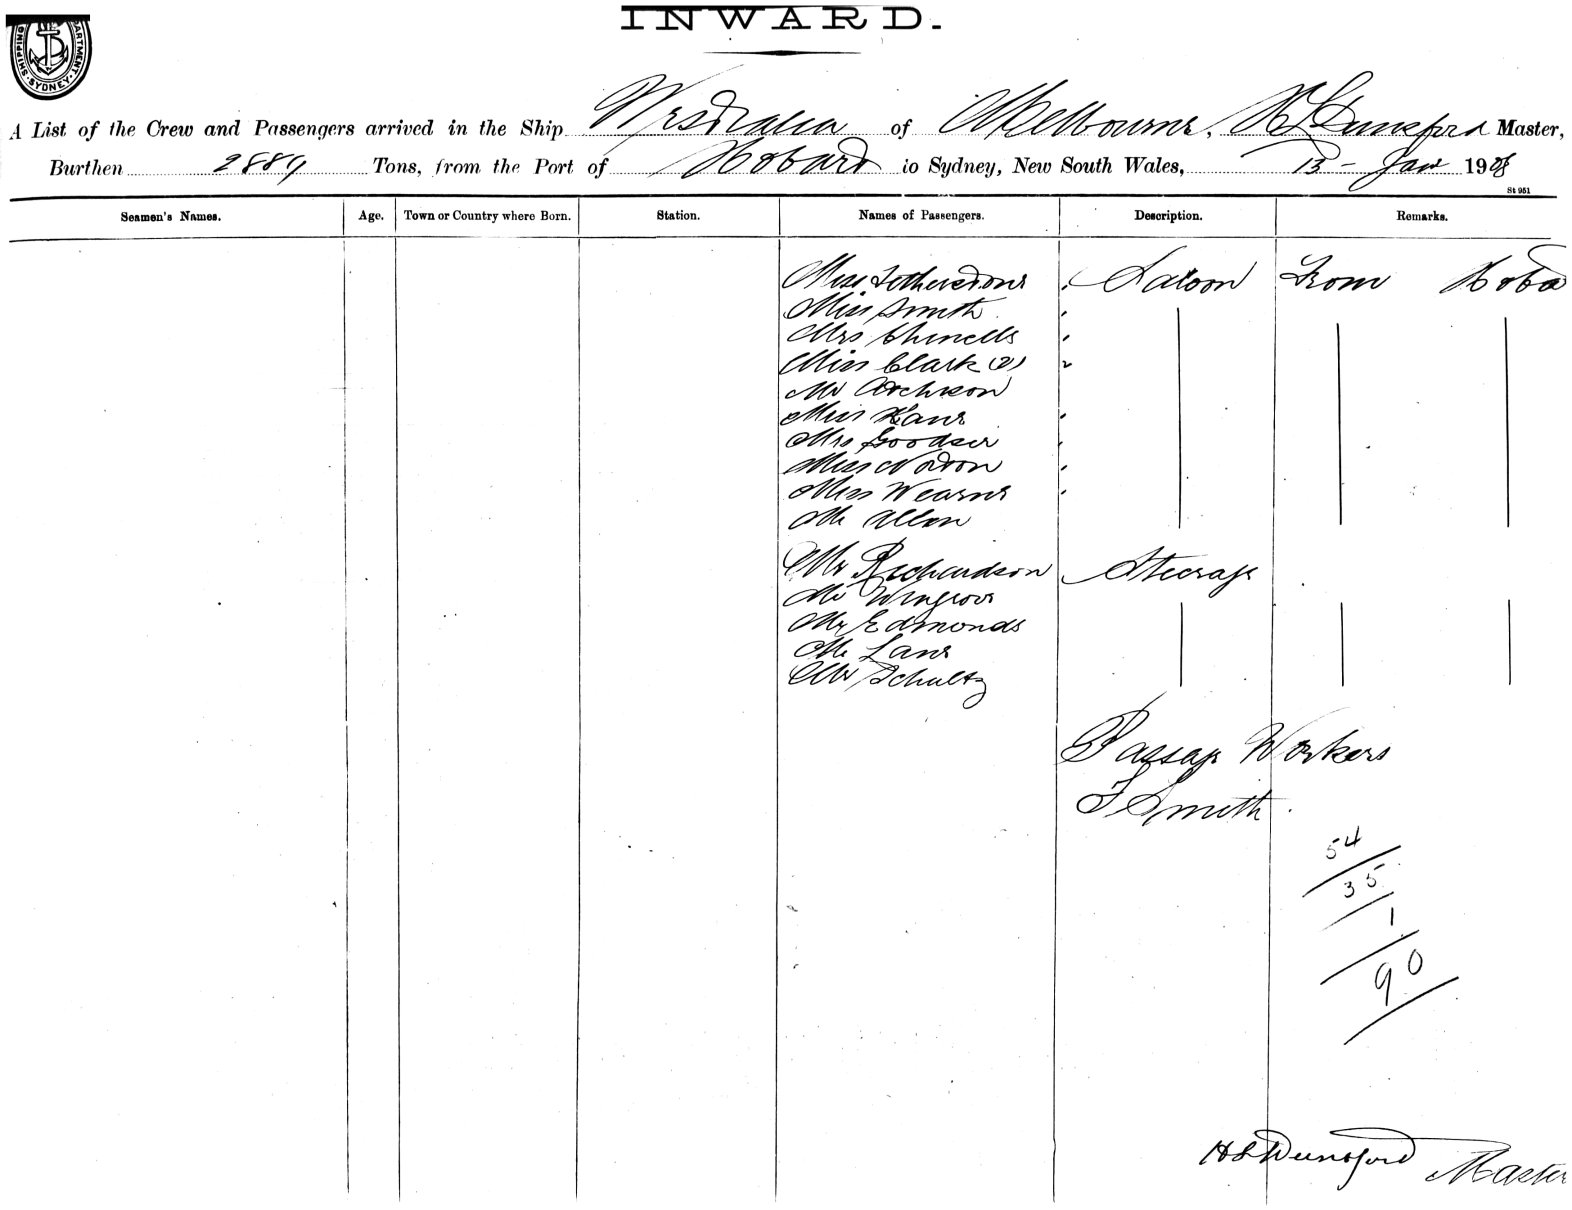 INWARD.
SHIPPING DEPARTMENT SYDNEY
A List of the Crew and Passengers arrived in the Ship Westralia of Melbourne, H L Dunsford Master,
Burthen 2884 Tons, from the Port of Hobart to Sydney, New South Wales, 13 - Jan 1908
St 951
Seamen's Names. Age. Town or Country where Born. Station. Names of Passengers. Description. Remarks.
Miss Saloon From Hoba
Miss Smith
Mrs
Miss Clark (2) 2
Mr
Miss Kane
Mrs
Miss Norton
Miss Wearne
Mr Allen
Mr Richardson Steerage
Mr Wingrove
Mr Edmonds
Mr Lane
Mr Schultz
Passage Workers
F Smith
54
35
1
90
H L Dunsford Master